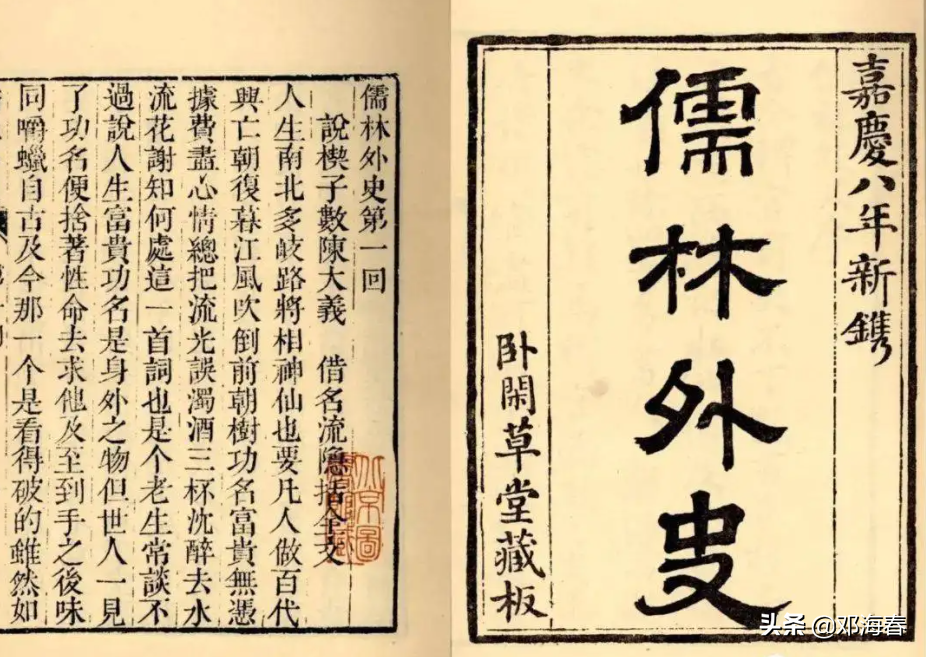 嘉慶八年新鐫
儒林外史
卧閑草堂藏板
儒林外史第一回
說楔子敷陳大義　借名流隱括全文
人生南北多岐路將相神仙也要凡人做百代
興亡朝復暮江風吹倒前朝樹功名富貴無憑
據費盡心情總把流光誤濁酒三杯沈醉去水
流花謝知何處這一首詞也是个老生常談不
過說人生富貴功名是身外之物但世人一見
了功名便捨著性命去求他及至到手之後味
同嚼蠟自古及今那一个是看得破的雖然如
头条 @邓海春